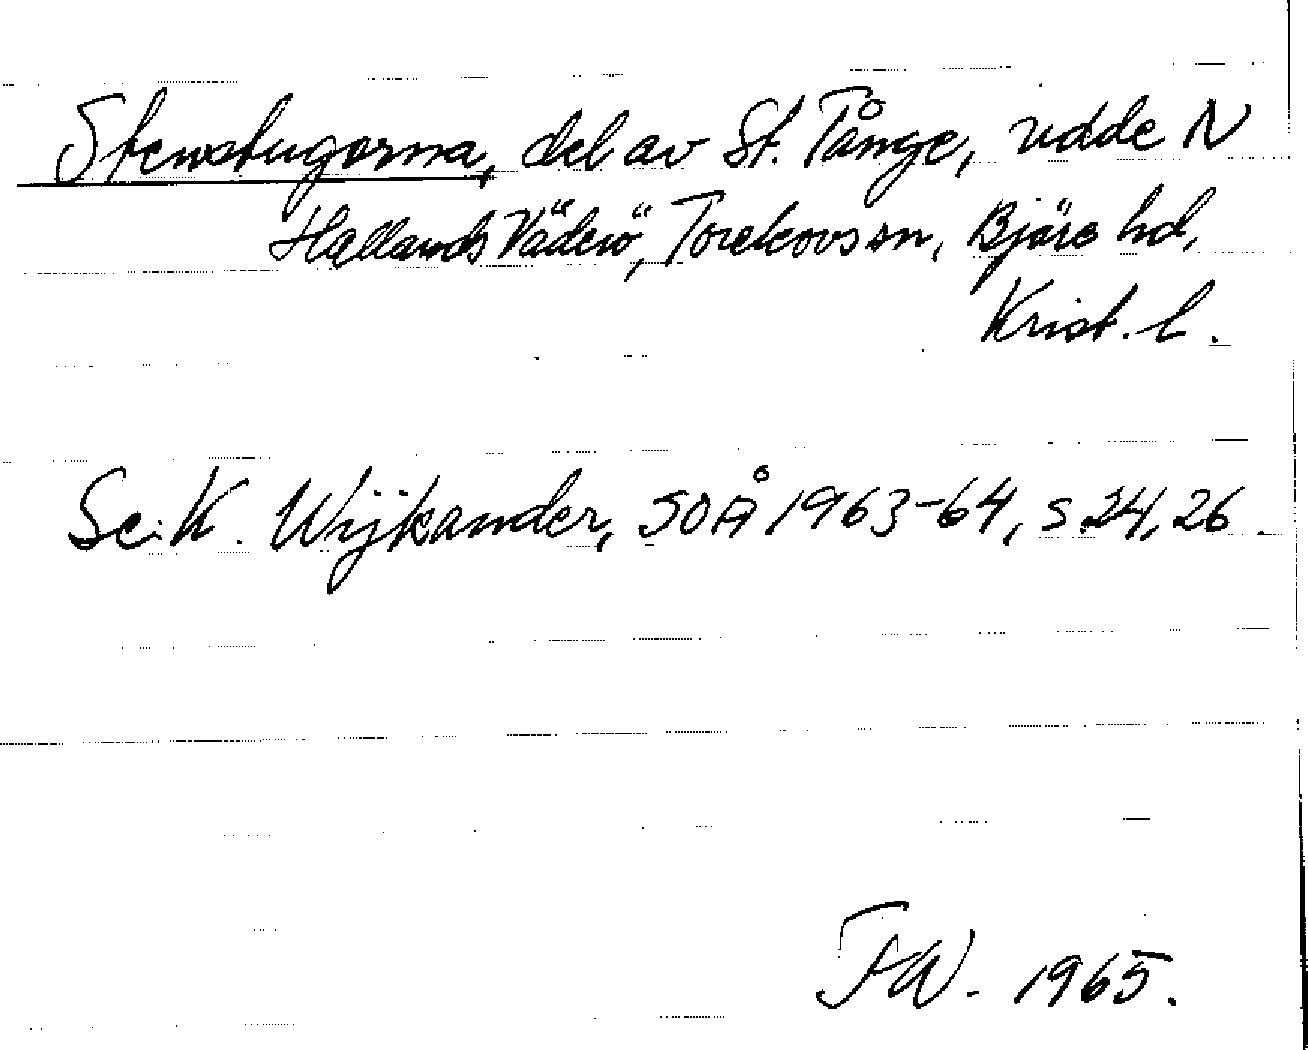 Stenstugorna, del av St. Tånge, udde N
Hallands Väderö, Torekovs sn, Bjäre hd,
Krist. l.
Se: K. Wijkander, SOÅ 1963-64, s. 24, 26.
FW. 1965.